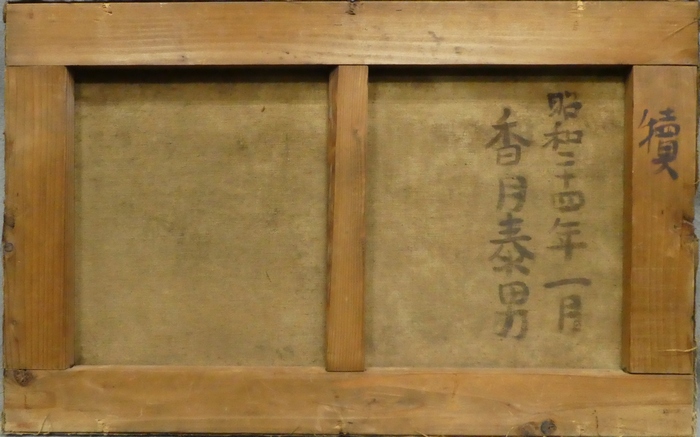 犢
昭和二十四年一月
香月泰男